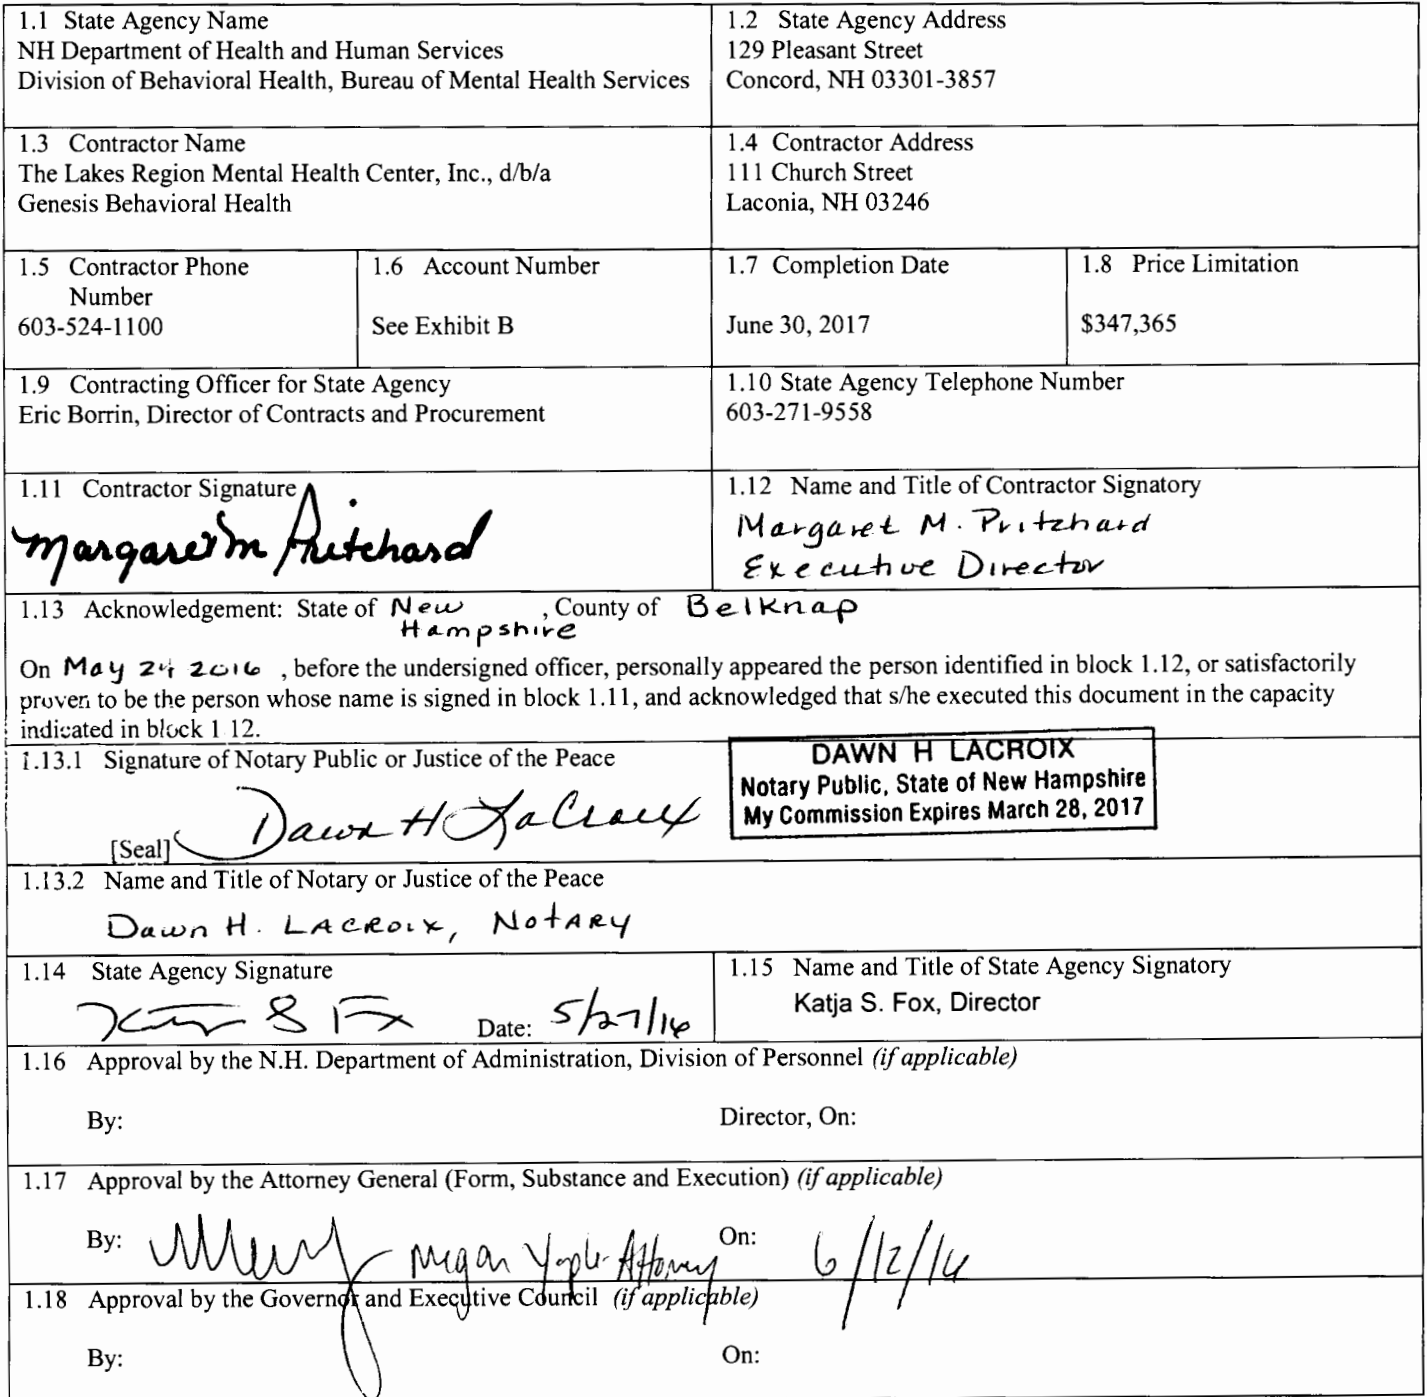 1.1 State Agency Name
NH Department of Health and Human Services
Division of Behavioral Health, Bureau of Mental Health Services
1.2 State Agency Address
129 Pleasant Street
Concord, NH 03301-3857
1.3 Contractor Name
The Lakes Region Mental Health Center, Inc., d/b/a
Genesis Behavioral Health
1.4 Contractor Address
111 Church Street
Laconia, NH 03246
1.5 Contractor Phone
Number
603-524-1100
1.6 Account Number
See Exhibit B
1.7 Completion Date
June 30, 2017
1.8 Price Limitation
$347,365
1.9 Contracting Officer for State Agency
Eric Borrin, Director of Contracts and Procurement
1.10 State Agency Telephone Number
603-271-9558
1.11 Contractor Signature
Margaret M Pritchard
1.12 Name and Title of Contractor Signatory
Margaret M. Pritchard
Executive Director
1.13 Acknowledgement: State of New Hampshire, County of Belknap
On May 24 2016, before the undersigned officer, personally appeared the person identified in block 1.12, or satisfactorily
proven to be the person whose name is signed in block 1.11, and acknowledged that s/he executed this document in the capacity
indicated in block 1 12.
1.13.1 Signature of Notary Public or Justice of the Peace
[Seal] Dawn H LaCroix
DAWN H LACROIX
Notary Public, State of New Hampshire
My Commission Expires March 28, 2017
1.13.2 Name and Title of Notary or Justice of the Peace
Dawn H. LACROIX, NOTARY
1.14 State Agency Signature
Date: 5/27/16
1.15 Name and Title of State Agency Signatory
Katja S. Fox, Director
1.16 Approval by the N.H. Department of Administration, Division of Personnel (if applicable)
By: Director, On:
1.17 Approval by the Attorney General (Form, Substance and Execution) (if applicable)
By: Megan Attorney On: 6/12/16
1.18 Approval by the Governor and Executive Council (if applicable)
By: On: